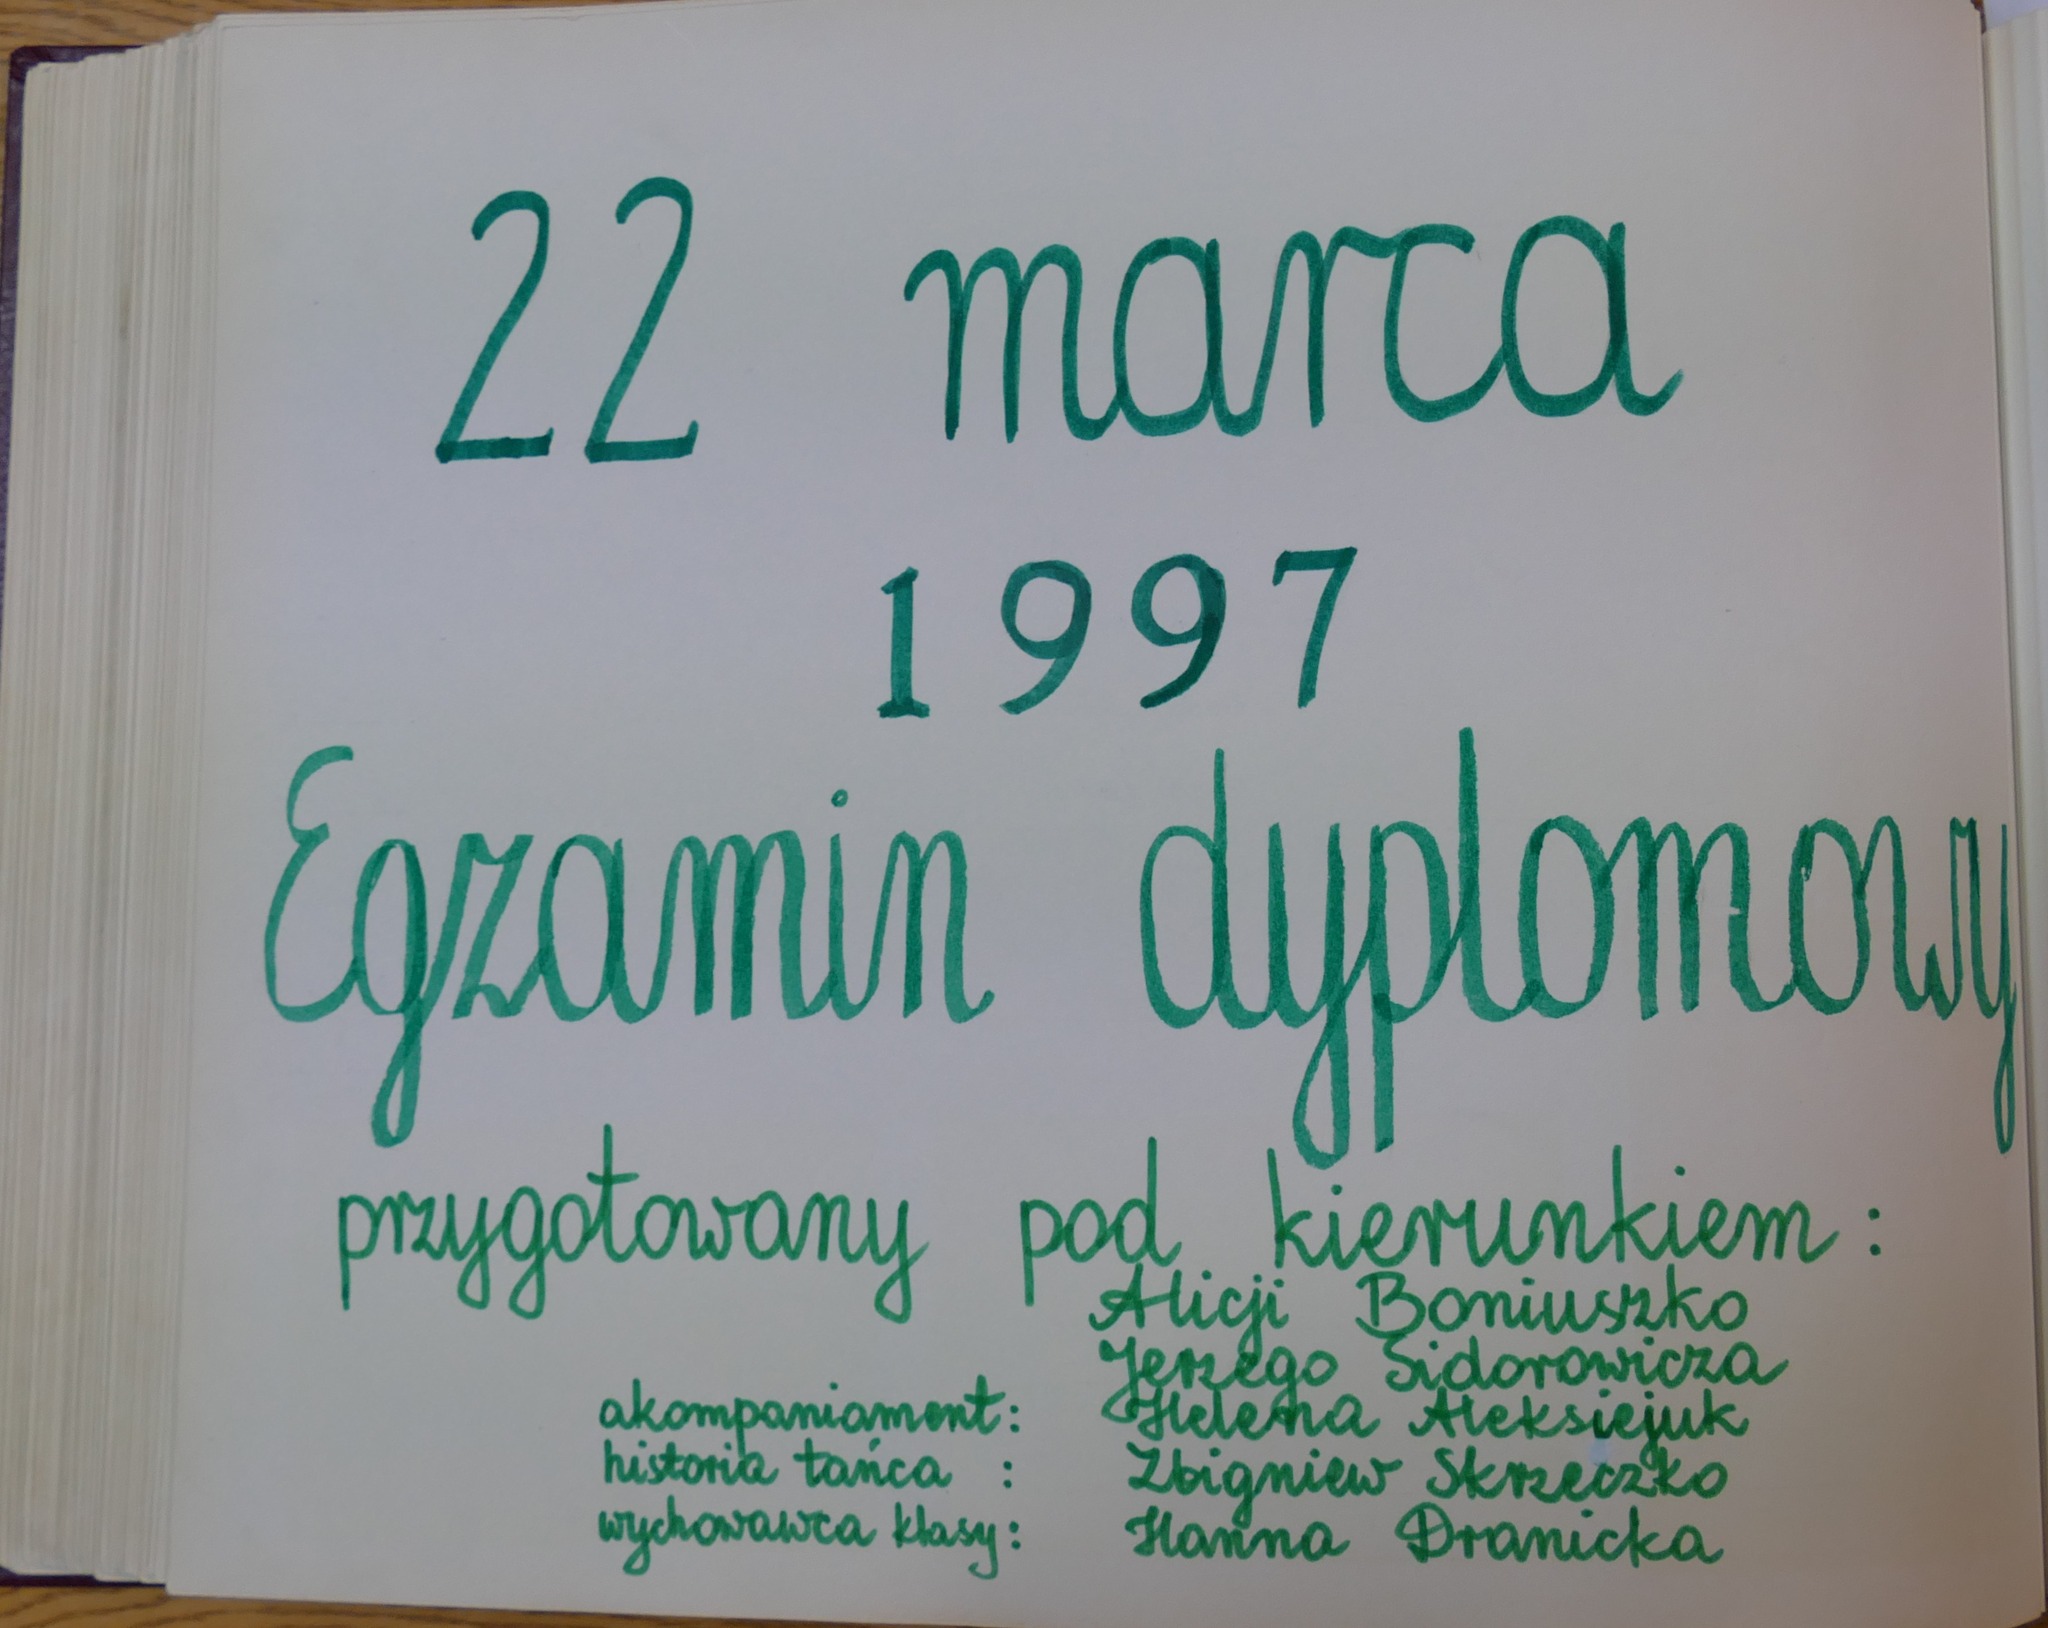 22 marca
1997
Egzamin dyplomowy
przygotowany pod kierunkiem:
Alicji Boniuszko
Jerzego Sidorowicza
akompaniament: Helena Aleksiejuk
historia tańca : Zbigniew Skrzeczko
wychowawca klasy: Hanna Dranicka